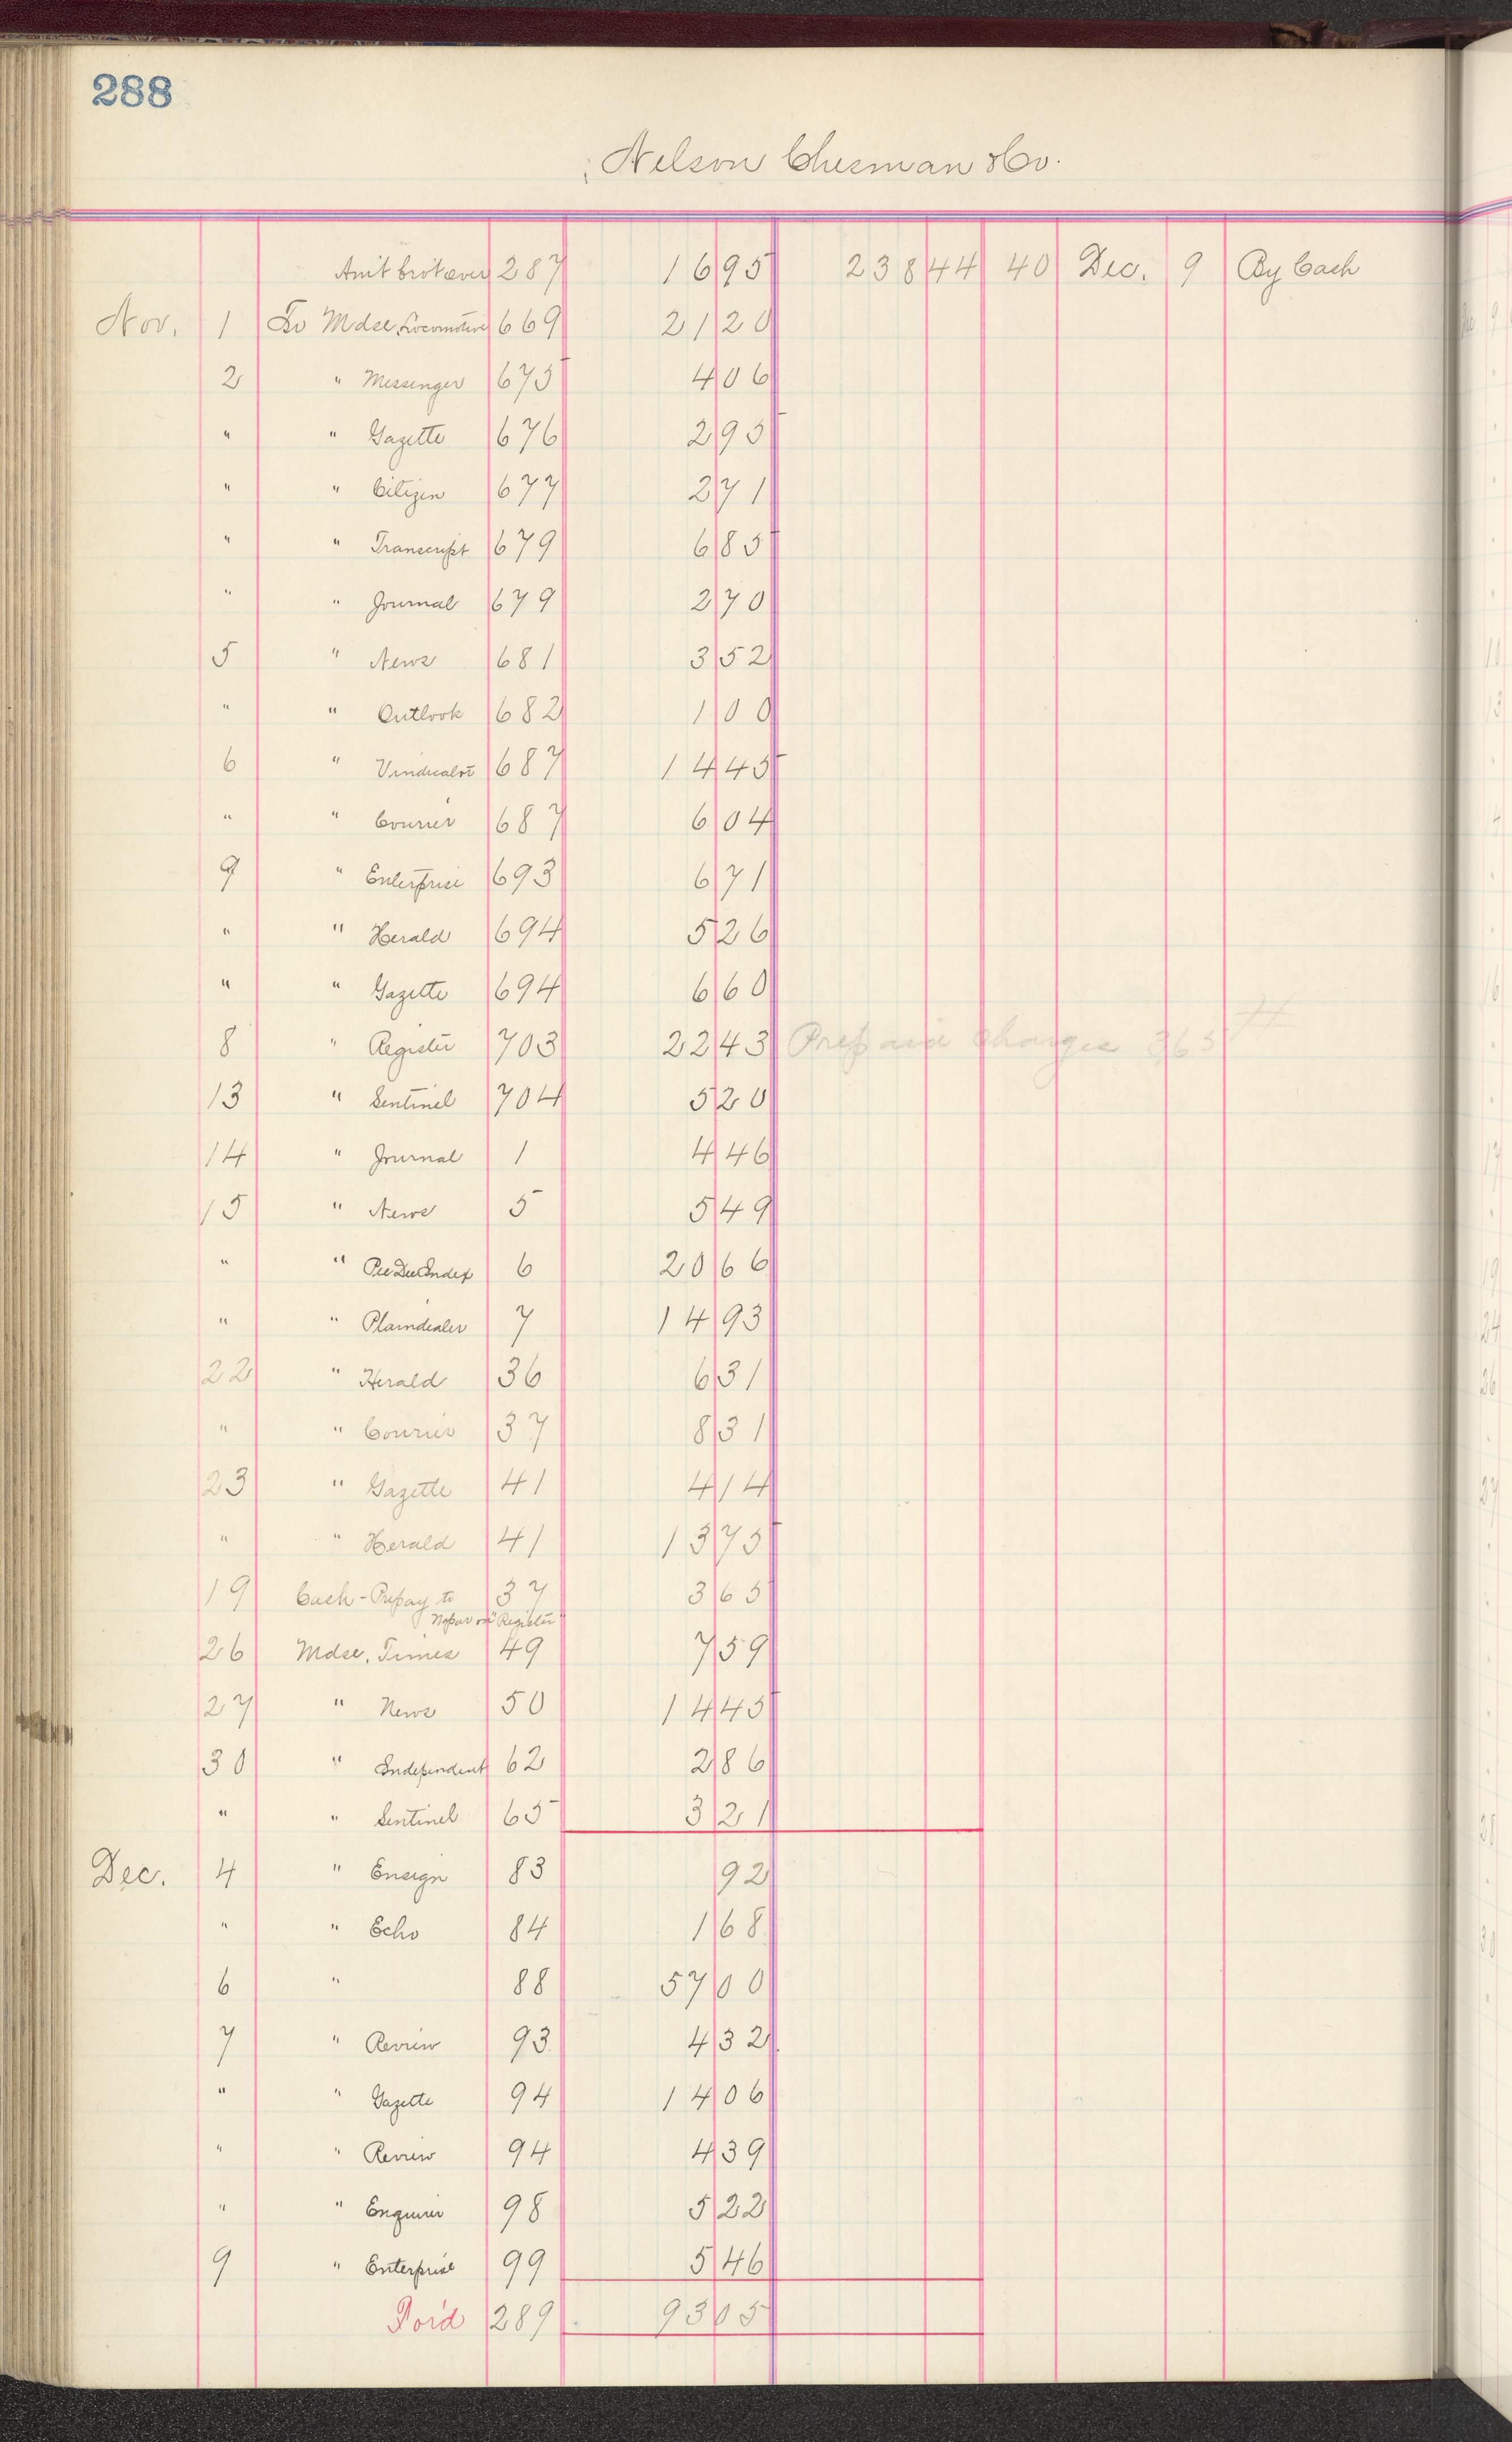 288
Nelson Chesman & Co.
Am't brot over 287 16 95 238 44 40 Dec. 9 By Cash
Nov. 1 To Mdse. Locomotive 669 21 20
2 " Messenger 675 4 06
" " Gazette 676 2 95
" " Citizen 677 2 71
" " Transcript 679 6 85
" " Journal 679 2 70
5 " News 681 3 52
" " Outlook 682 1 00
6 " Vindicator 687 14 45
" " Courier 687 6 04
9 " Enterprise 693 6 71
" " Herald 694 5 26
" " Gazette 694 6 60
8 " Register 703 22 43 Prepaid charges 3 65
13 " Sentinel 704 5 20
14 " Journal 1 4 46
15 " News 5 5 49
" " Pee Dee Index 6 20 66
" " Plaindealer 7 14 93
22 " Herald 36 6 31
" " Courier 37 8 31
23 " Gazette 41 4 14
" " Herald 41 13 75
19 Cash - Prepay to 37 3 65
on "Register"
26 Mdse. Times 49 7 59
27 " News 50 14 45
30 " Independent 62 2 86
" " Sentinel 65 3 21
Dec. 4 " Ensign 83 92
" " Echo 84 1 68
6 " 88 57 00
7 " Review 93 4 32
" " Gazette 94 14 06
" " Review 94 4 39
" " Enquirer 98 5 22
9 " Enterprise 99 5 46
For'd 289 93 05